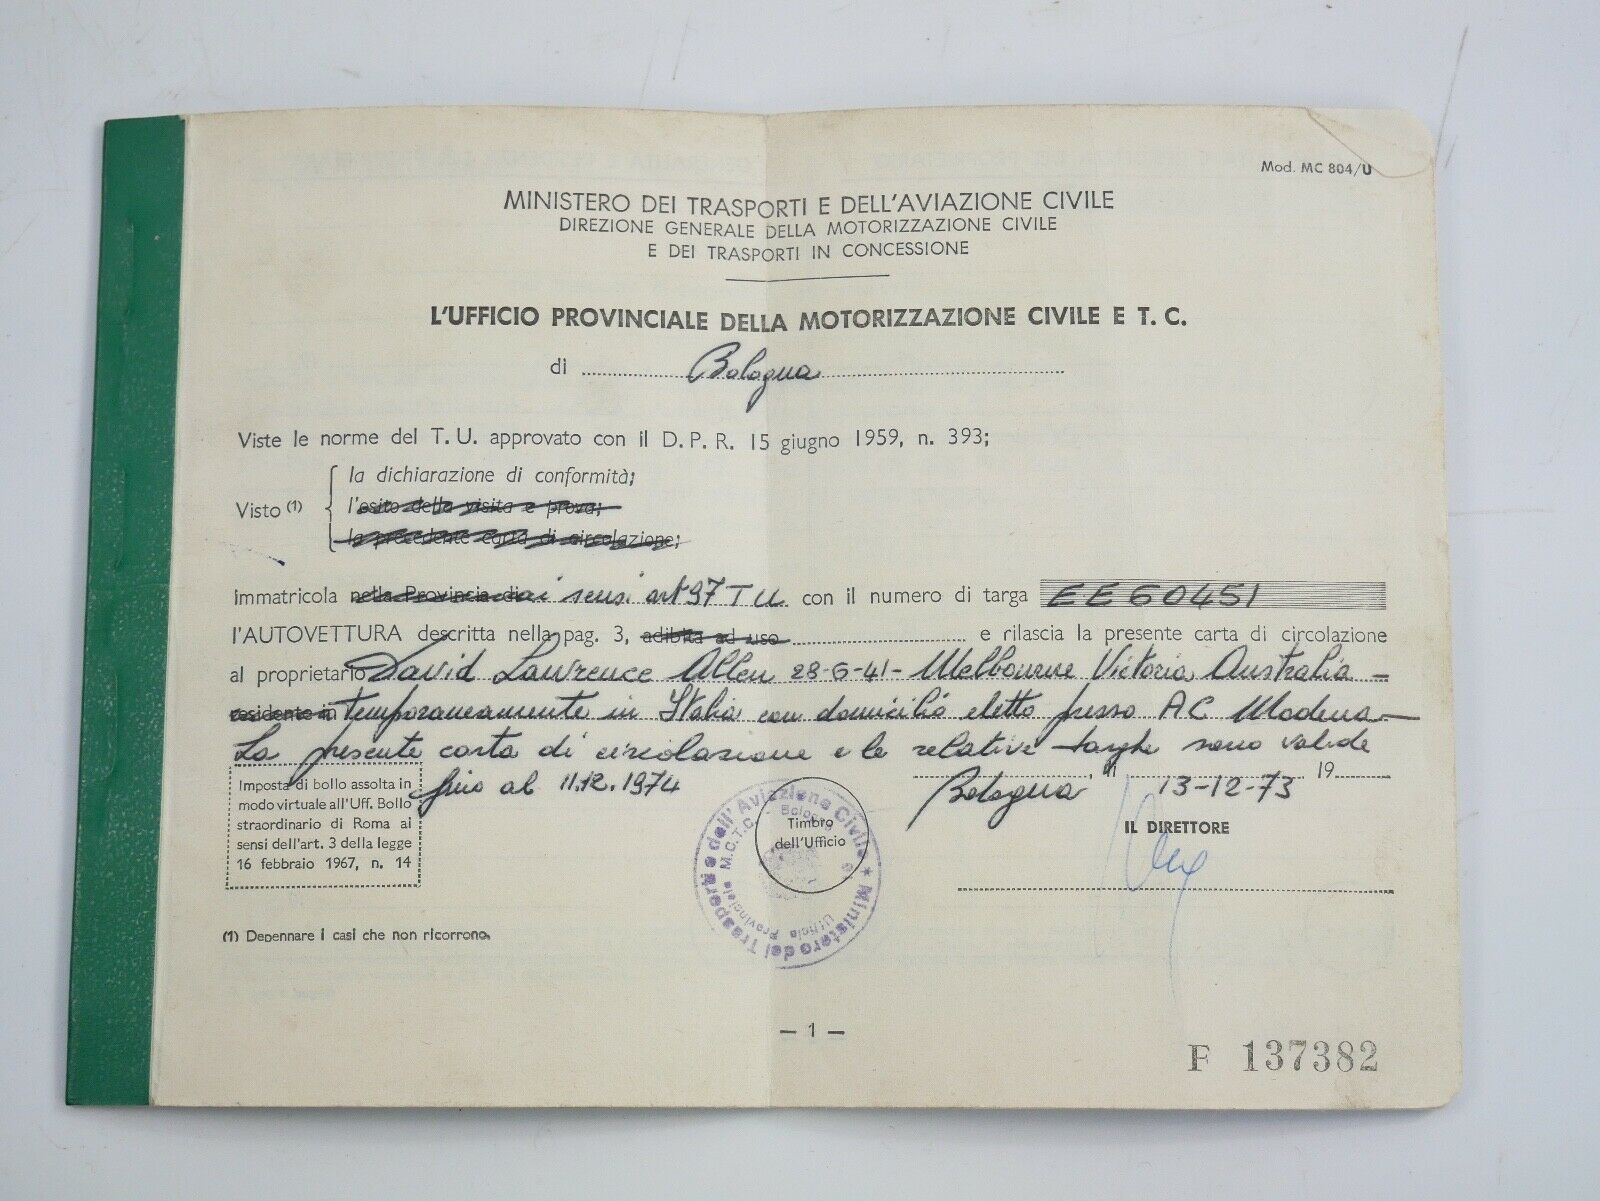 Mod. MC 804/U
MINISTERO DEI TRASPORTI E DELL'AVIAZIONE CIVILE
DIREZIONE GENERALE DELLA MOTORIZZAZIONE CIVILE
E DEI TRASPORTI IN CONCESSIONE
L'UFFICIO PROVINCIALE DELLA MOTORIZZAZIONE CIVILE E T. C.
di Bologna
Viste le norme del T. U. approvato con il D. P. R. 15 giugno 1959, n. 393;
la dichiarazione di conformità;
Visto (1) l'esito della visita e prova;
la precedente carta di circolazione;
Immatricola nella Provincia di ai sensi art 97 TU con il numero di targa EE 60451
l'AUTOVETTURA descritta nella pag. 3, adibita ad uso e rilascia la presente carta di circolazione
al proprietario David Lawrence Allen 28-6-41 - Melbourne Victoria Australia -
residente in temporaneamente in Italia con domicilio eletto presso AC Modena -
La presente carta di circolazione e le relative targhe sono valide
fino al 11.12.1974 Bologna, li 13-12-73 19
Imposta di bollo assolta in
modo virtuale all'Uff. Bollo
straordinario di Roma ai
sensi dell'art. 3 della legge
16 febbraio 1967, n. 14
Timbro
dell'Ufficio
Ministero dei Trasporti e dell'Aviazione Civile
Ufficio Provinciale M.C.T.C. - Bologna
IL DIRETTORE
(1) Depennare i casi che non ricorrono.
— 1 —
F 137382